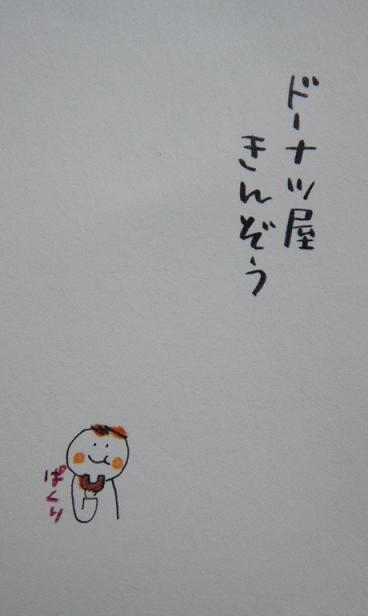 ドーナツ屋
きんぞう
ぱくり